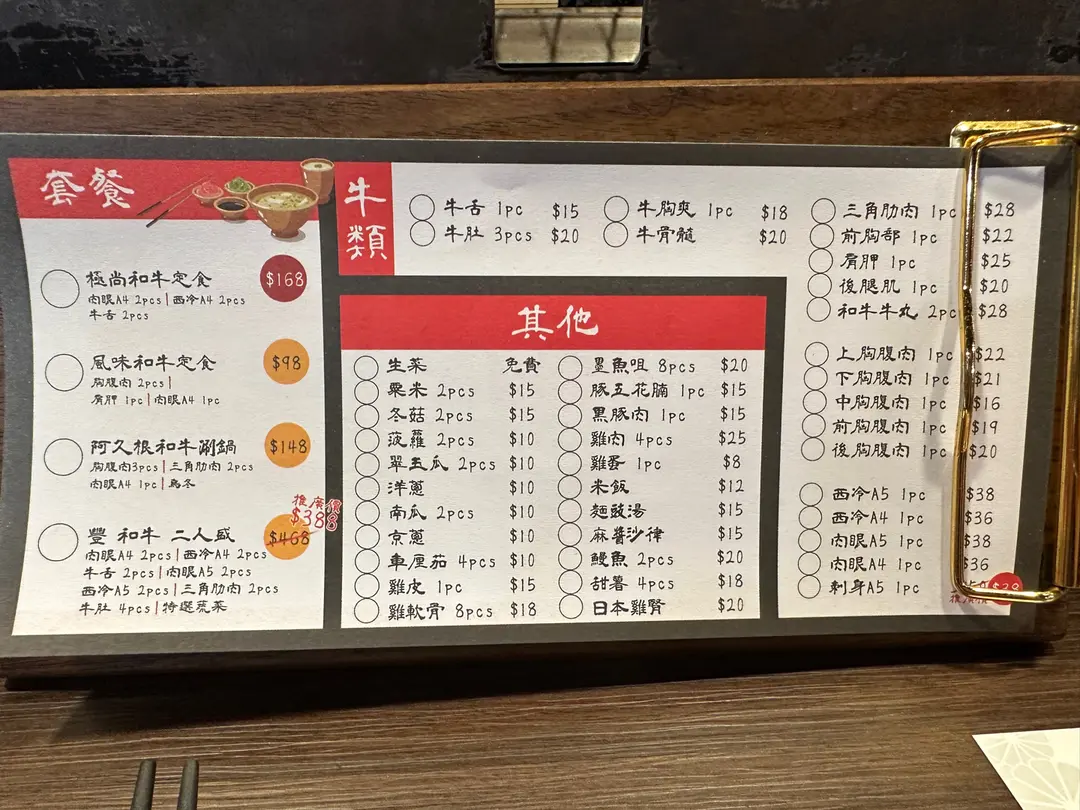 套餐
極尚和牛定食 $168
肉眼A4 2pcs | 西冷A4 2pcs
牛舌 2pcs
風味和牛定食 $98
胸腹肉 2pcs |
肩胛 1pc | 肉眼A4 1pc
阿久根和牛涮鍋 $148
胸腹肉3pcs | 三角肋肉 2pcs
肉眼A4 1pc | 烏冬
豐 和牛 二人盛 $468
推廣價
$388
肉眼A4 2pcs | 西冷A4 2pcs
牛舌 2pcs | 肉眼A5 2pcs
西冷A5 2pcs | 三角肋肉 2pcs
牛肚 4pcs | 特選蔬菜
牛類
牛舌 1pc $15
牛肚 3pcs $20
牛胸爽 1pc $18
牛骨髓 $20
三角肋肉 1pc $28
前胸部 1pc $22
肩胛 1pc $25
後腿肌 1pc $20
和牛牛丸 2pc $28
上胸腹肉 1pc $22
下胸腹肉 1pc $21
中胸腹肉 1pc $16
前胸腹肉 1pc $19
後胸腹肉 1pc $20
西冷A5 1pc $38
西冷A4 1pc $36
肉眼A5 1pc $38
肉眼A4 1pc $36
刺身A5 1pc
其他
生菜 免費
粟米 2pcs $15
冬菇 2pcs $15
菠蘿 2pcs $10
翠玉瓜 2pcs $10
洋蔥 $10
南瓜 2pcs $10
京蔥 $10
車厘茄 4pcs $10
雞皮 1pc $15
雞軟骨 8pcs $18
墨魚咀 8pcs $20
豚五花腩 1pc $15
黑豚肉 1pc $15
雞肉 4pcs $25
雞蛋 1pc $8
米飯 $12
麵豉湯 $15
麻醬沙律 $15
鰻魚 2pcs $20
甜薯 4pcs $18
日本雞腎 $20